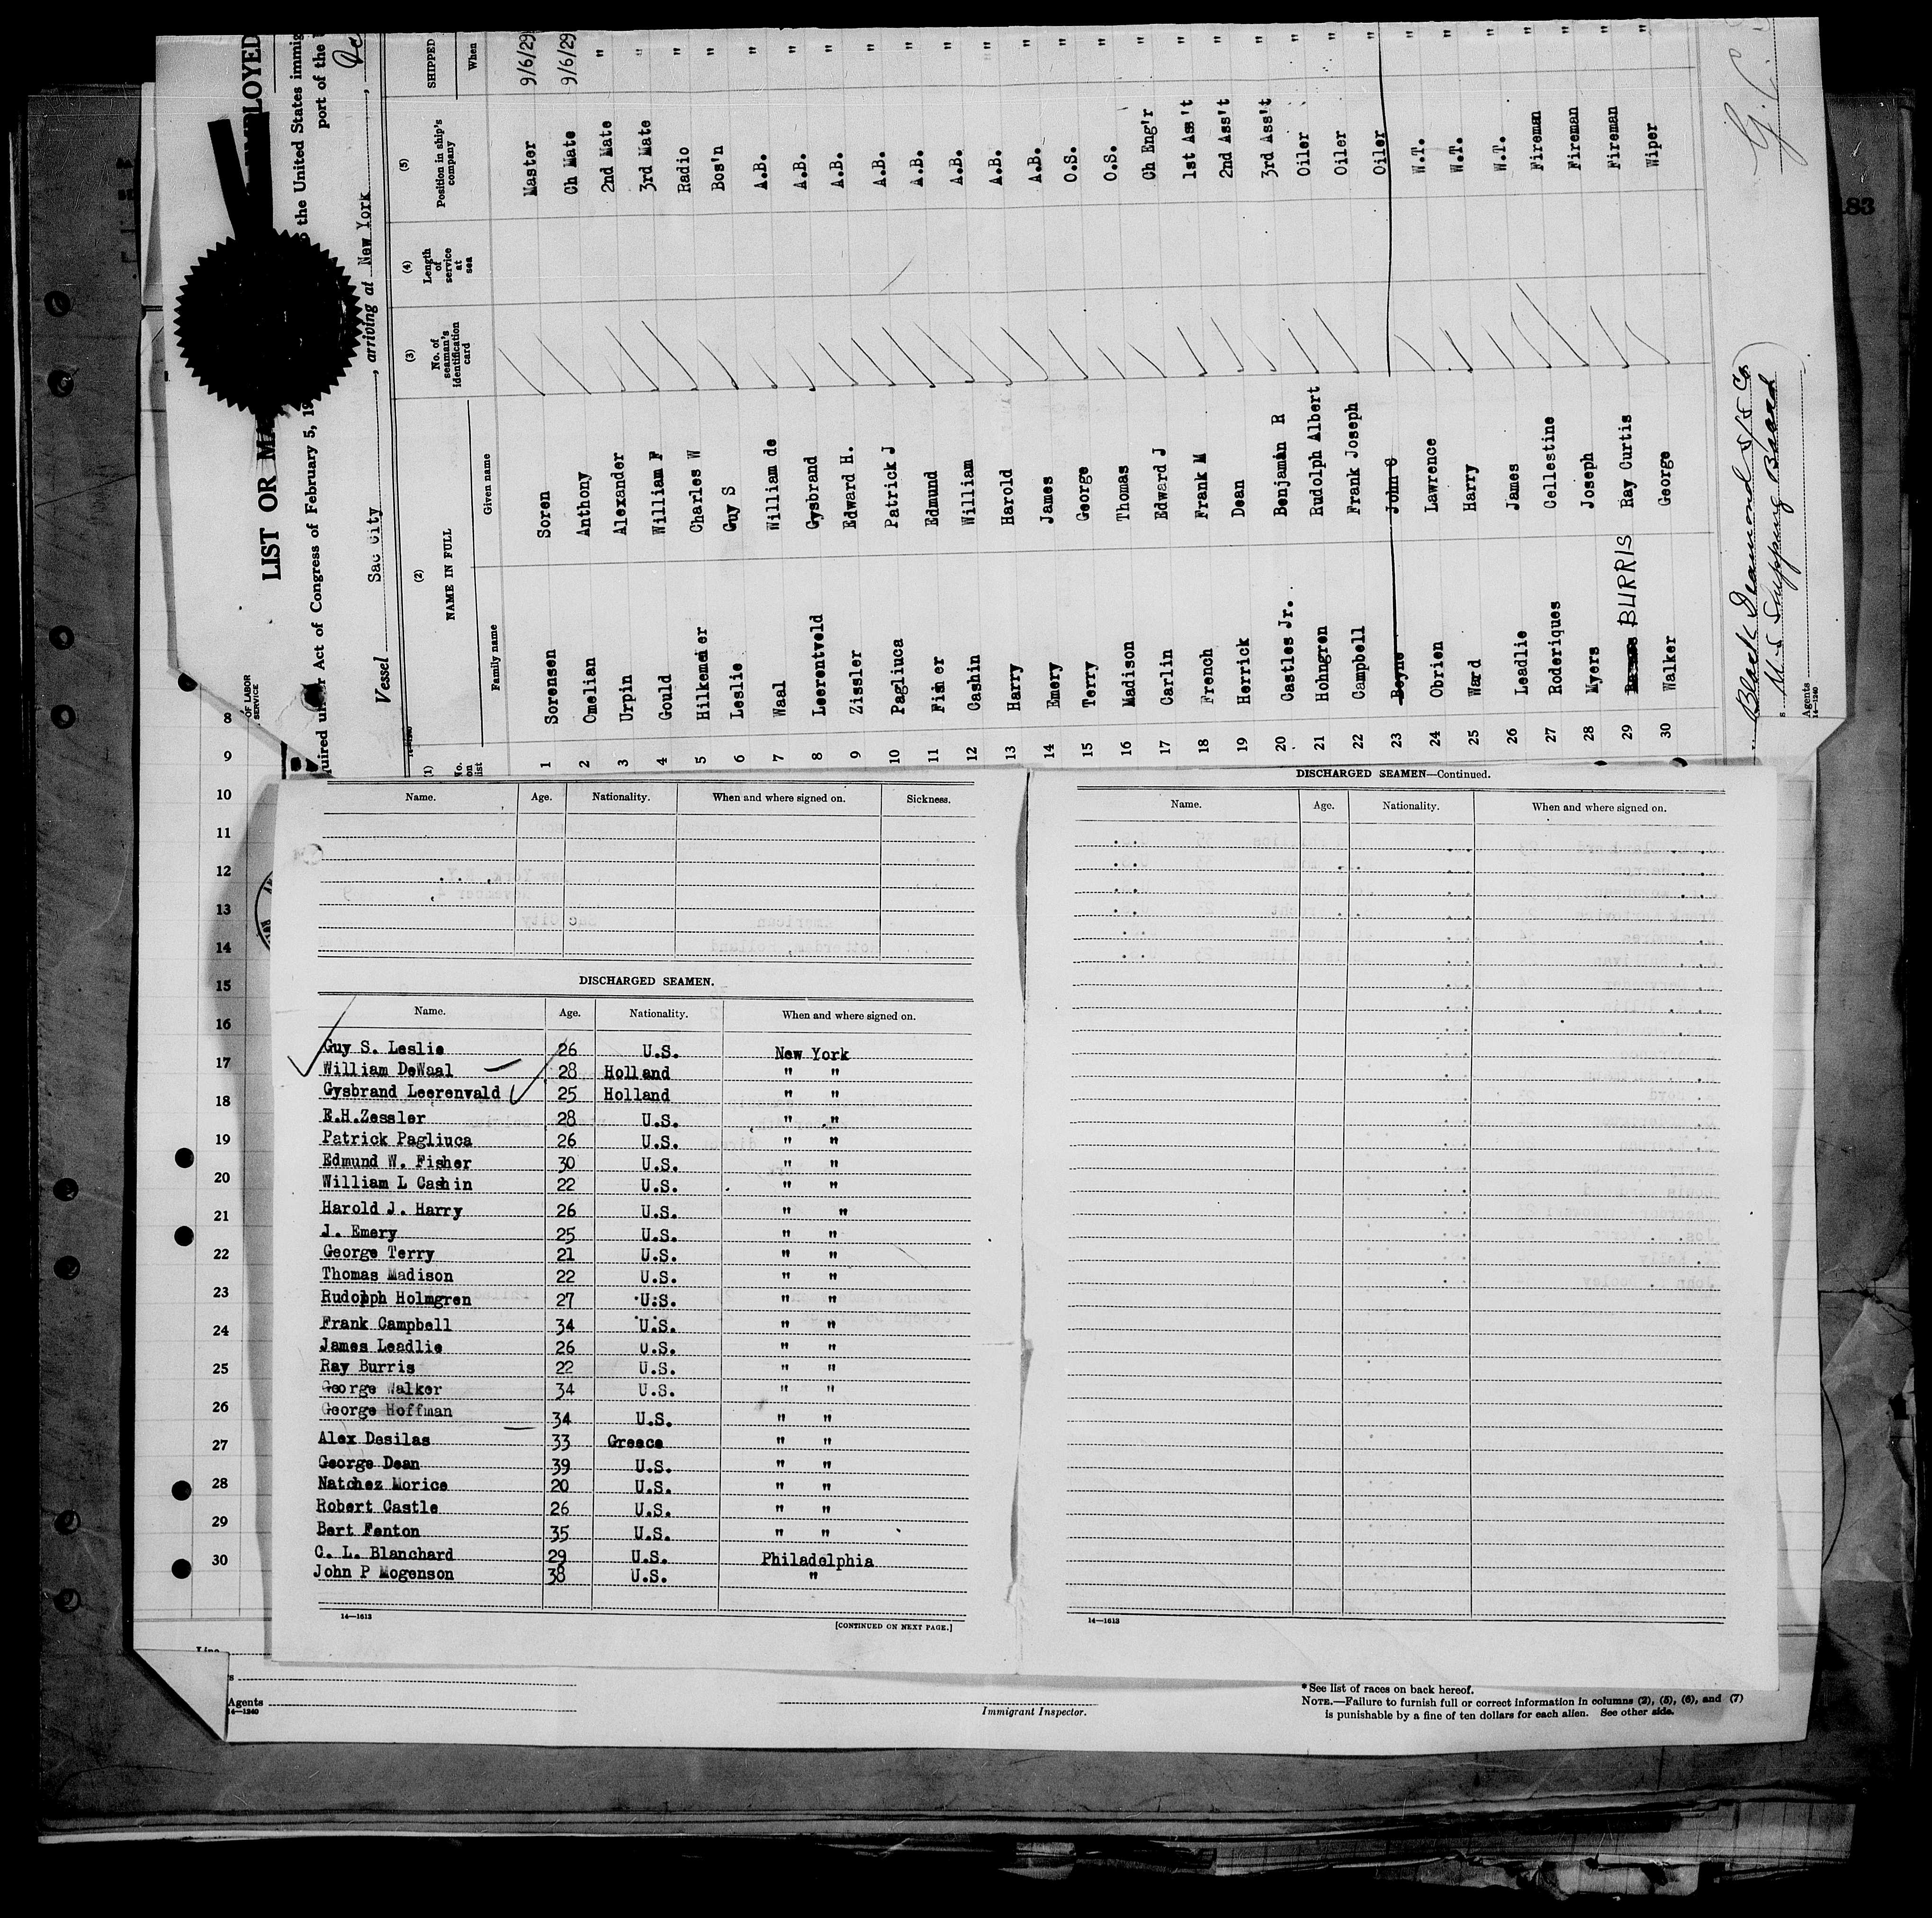 LIST OR MA
PLOYED
uired un er Act of Congress of February 5, 19
the United States immig
port of the
Vessel Sac City, arriving at New York,
(1) No. on list
(2) NAME IN FULL
Family name
Given name
(3) No. of seaman's identification card
(4) Length of service at sea
(5) Position in ship's company
SHIPPED
When
1 Sorensen Soren Master 9/6/29
2 Omelian Anthony Ch Mate 9/6/29
3 Urpin Alexander 2nd Mate "
4 Gould William F 3rd Mate "
5 Hilkemeier Charles W Radio "
6 Leslie Guy S Bos'n "
7 Waal William de A.B. "
8 Leerentveld Gysbrand A.B. "
9 Zissler Edward H. A.B. "
10 Pagliuca Patrick J A.B. "
11 Fisher Edmund A.B. "
12 Cashin William A.B. "
13 Harry Harold A.B. "
14 Emery James A.B. "
15 Terry George O.S. "
16 Madison Thomas O.S. "
17 Carlin Edward J Ch Eng'r "
18 French Frank M 1st Ass't "
19 Herrick Dean 2nd Ass't "
20 Castles Jr. Benjamin R 3rd Ass't "
21 Hohngren Rudolph Albert Oiler "
22 Campbell Frank Joseph Oiler "
23 Boyne John C Oiler "
24 Obrien Lawrence W.T. "
25 Ward Harry W.T. "
26 Leadlie James W.T. "
27 Roderiques Cellestine Fireman "
28 Myers Joseph Fireman "
29 BURRIS Ray Curtis Fireman "
30 Walker George Wiper "
Black Diamond S/S Co
U.S Shipping Board
Agents
14—1240
OF LABOR
SERVICE
183
8
9
10
11
12
13
14
15
16
17
18
19
20
21
22
23
24
25
26
27
28
29
30
Name. Age. Nationality. When and where signed on. Sickness.
DISCHARGED SEAMEN.
Name. Age. Nationality. When and where signed on.
Guy S. Leslie 26 U.S. New York
William DeWaal 28 Holland " "
Gysbrand Leerenvald 25 Holland " "
E.H.Zessler 28 U.S. " "
Patrick Pagliuca 26 U.S. " "
Edmund W. Fisher 30 U.S. " "
William L Cashin 22 U.S. " "
Harold J. Harry 26 U.S. " "
J. Emery 25 U.S. " "
George Terry 21 U.S. " "
Thomas Madison 22 U.S. " "
Rudolph Holmgren 27 U.S. " "
Frank Campbell 34 U.S. " "
James Leadlie 26 U.S. " "
Ray Burris 22 U.S. " "
George Walker 34 U.S. " "
George Hoffman 34 U.S. " "
Alex Desilas 33 Greece " "
George Dean 39 U.S. " "
Natchez Morice 20 U.S. " "
Robert Castle 26 U.S. " "
Bert Fenton 35 U.S. " "
C. L. Blanchard 29 U.S. Philadelphia
John P Mogenson 38 U.S. "
14—1613
[CONTINUED ON NEXT PAGE.]
DISCHARGED SEAMEN—Continued.
Name. Age. Nationality. When and where signed on.
14—1613
Line
s
Agents
14—1240
Immigrant Inspector.
* See list of races on back hereof.
NOTE.—Failure to furnish full or correct information in columns (2), (5), (6), and (7)
is punishable by a fine of ten dollars for each alien. See other side.